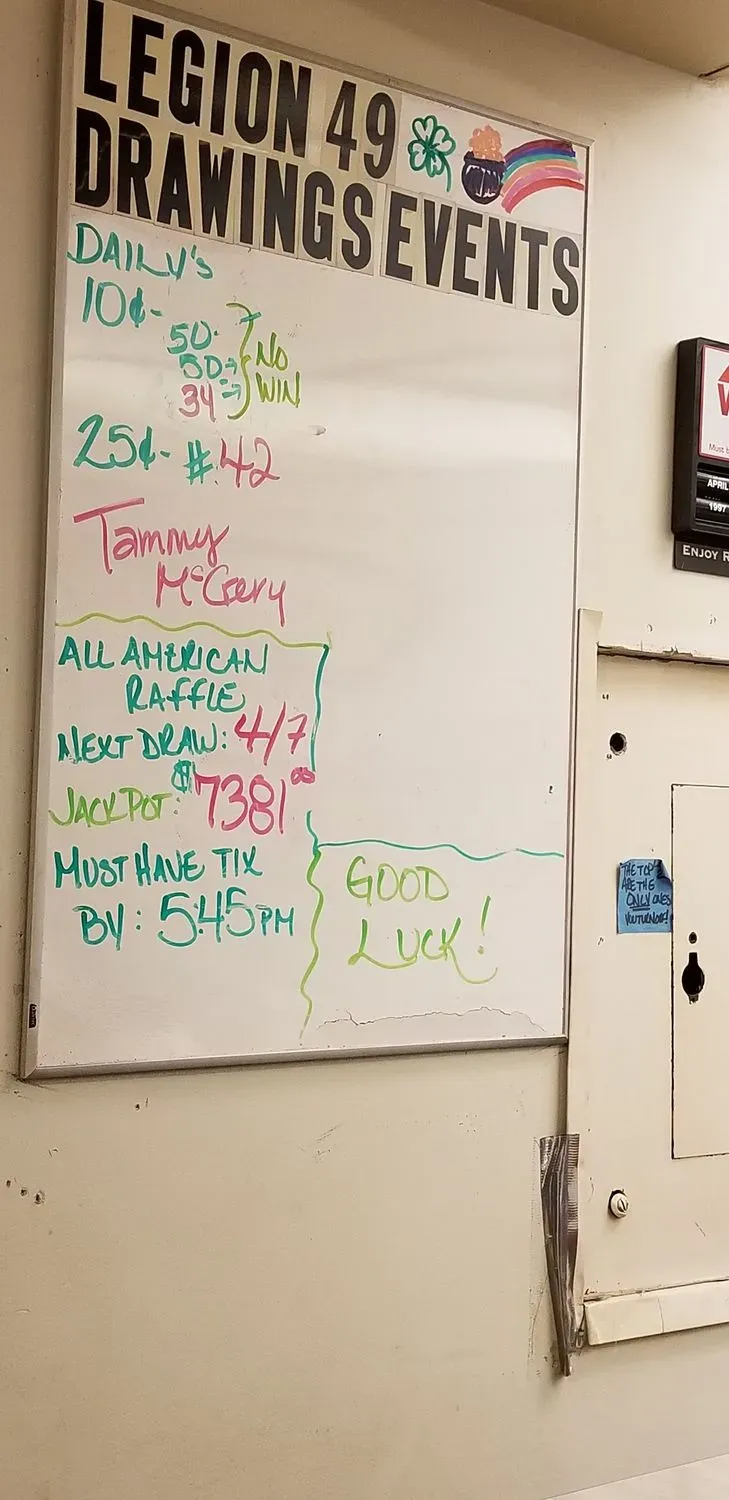 LEGION 49
DRAWINGS EVENTS
DAILY'S
10¢-
50-
50→
34→
NO
WIN
25¢- #42
Tammy
McGery
ALL AMERICAN
RAFFLE
NEXT DRAW: 4/7
JACKPOT: $7381.00
MUST HAVE TIX
BY: 5:45PM
GOOD
LUCK!
Must b
APRIL
1997
ENJOY R
THE TOP 2
ARE THE
ONLY ones
YOU TURN OFF!